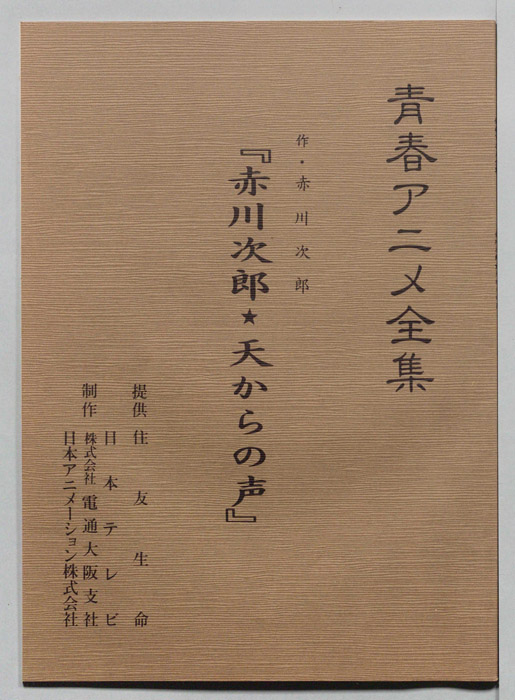 青春アニメ全集
作・赤川次郎
『赤川次郎★天からの声』
提供 住友生命
日本テレビ
制作 株式会社 電通大阪支社
日本アニメーション株式会社